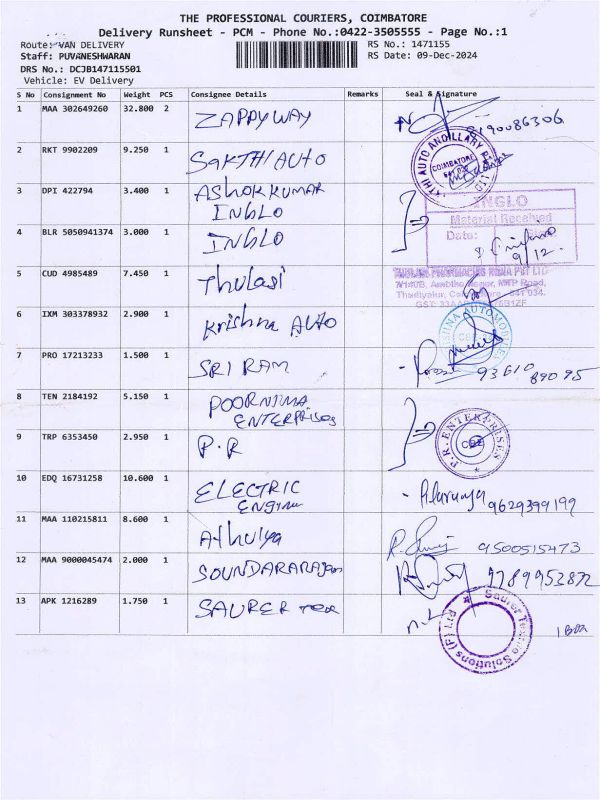 THE PROFESSIONAL COURIERS, COIMBATORE
Delivery Runsheet - PCM - Phone No.:0422-3505555 - Page No.:1
Route: VAN DELIVERY
RS No.: 1471155
Staff: PUVANESHWARAN
RS Date: 09-Dec-2024
DRS No.: DCJB147115501
Vehicle: EV Delivery
S No Consignment No Weight PCS Consignee Details Remarks Seal & Signature
1 MAA 302649260 32.800 2 ZAPPYWAY 8190086306
2 RKT 9902209 9.250 1 SAKTHI AUTO
COIMBATORE
3 DPI 422794 3.400 1 ASHOK KUMAR
INGLO
INGLO
Material Received
Date:
9/12.
4 BLR 5050941374 3.000 1 INGLO
5 CUD 4985489 7.450 1 Thulasi
6 IXM 303378932 2.900 1 Krishna AUTO
7 PRO 17213233 1.500 1 SRI RAM 93610
89095
8 TEN 2184192 5.150 1 POORNIMA
ENTERPRISES
9 TRP 6353450 2.950 1 P.R
P.R. ENTERPRISES
CBE
10 EDQ 16731258 10.600 1 ELECTRIC
ENGINE
9629399199
11 MAA 110215811 8.600 1 Athulya 9500515473
12 MAA 9000045474 2.000 1 SOUNDARARAJAN 9789953872
13 APK 1216289 1.750 1 SAURER
Saurer Textile Solutions (P) Ltd
1 Box